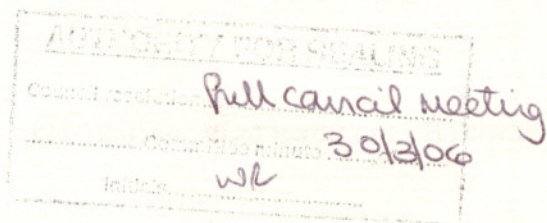 AUTHORITY FOR SEALING
Council resolution Full council meeting
Committee minute 30/3/06
Initials WR